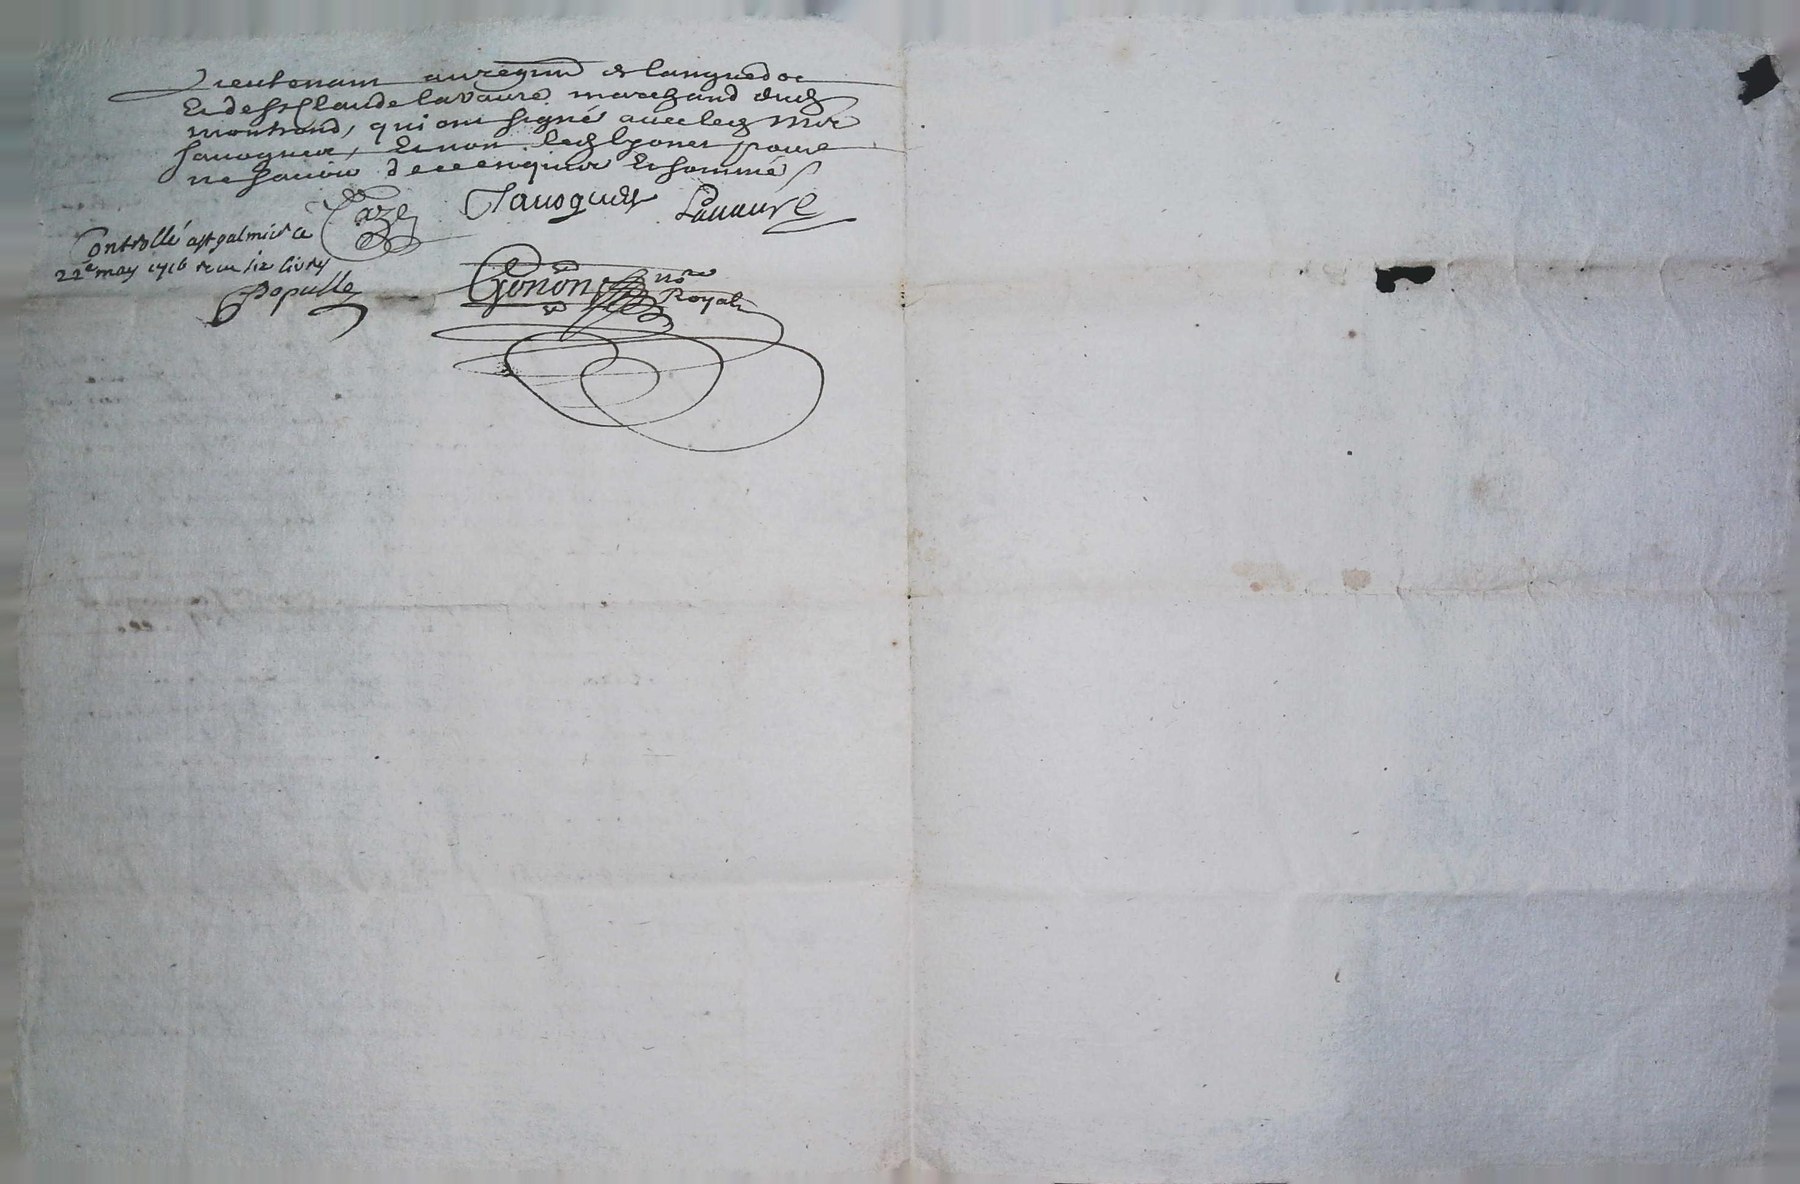 Lieutenant au regimt de languedoc
Et de sr Claude lavaure marchand dud
montrond, qui ont signé avec led Mre
Javogues, Et non led ponet pour
ne savoir de ce enquis Et sommé
Cazes Javogues Lavaure
Controllé a st galmier ce
22e may 1716 receu six livres
Populle
Gonon nore
Royal